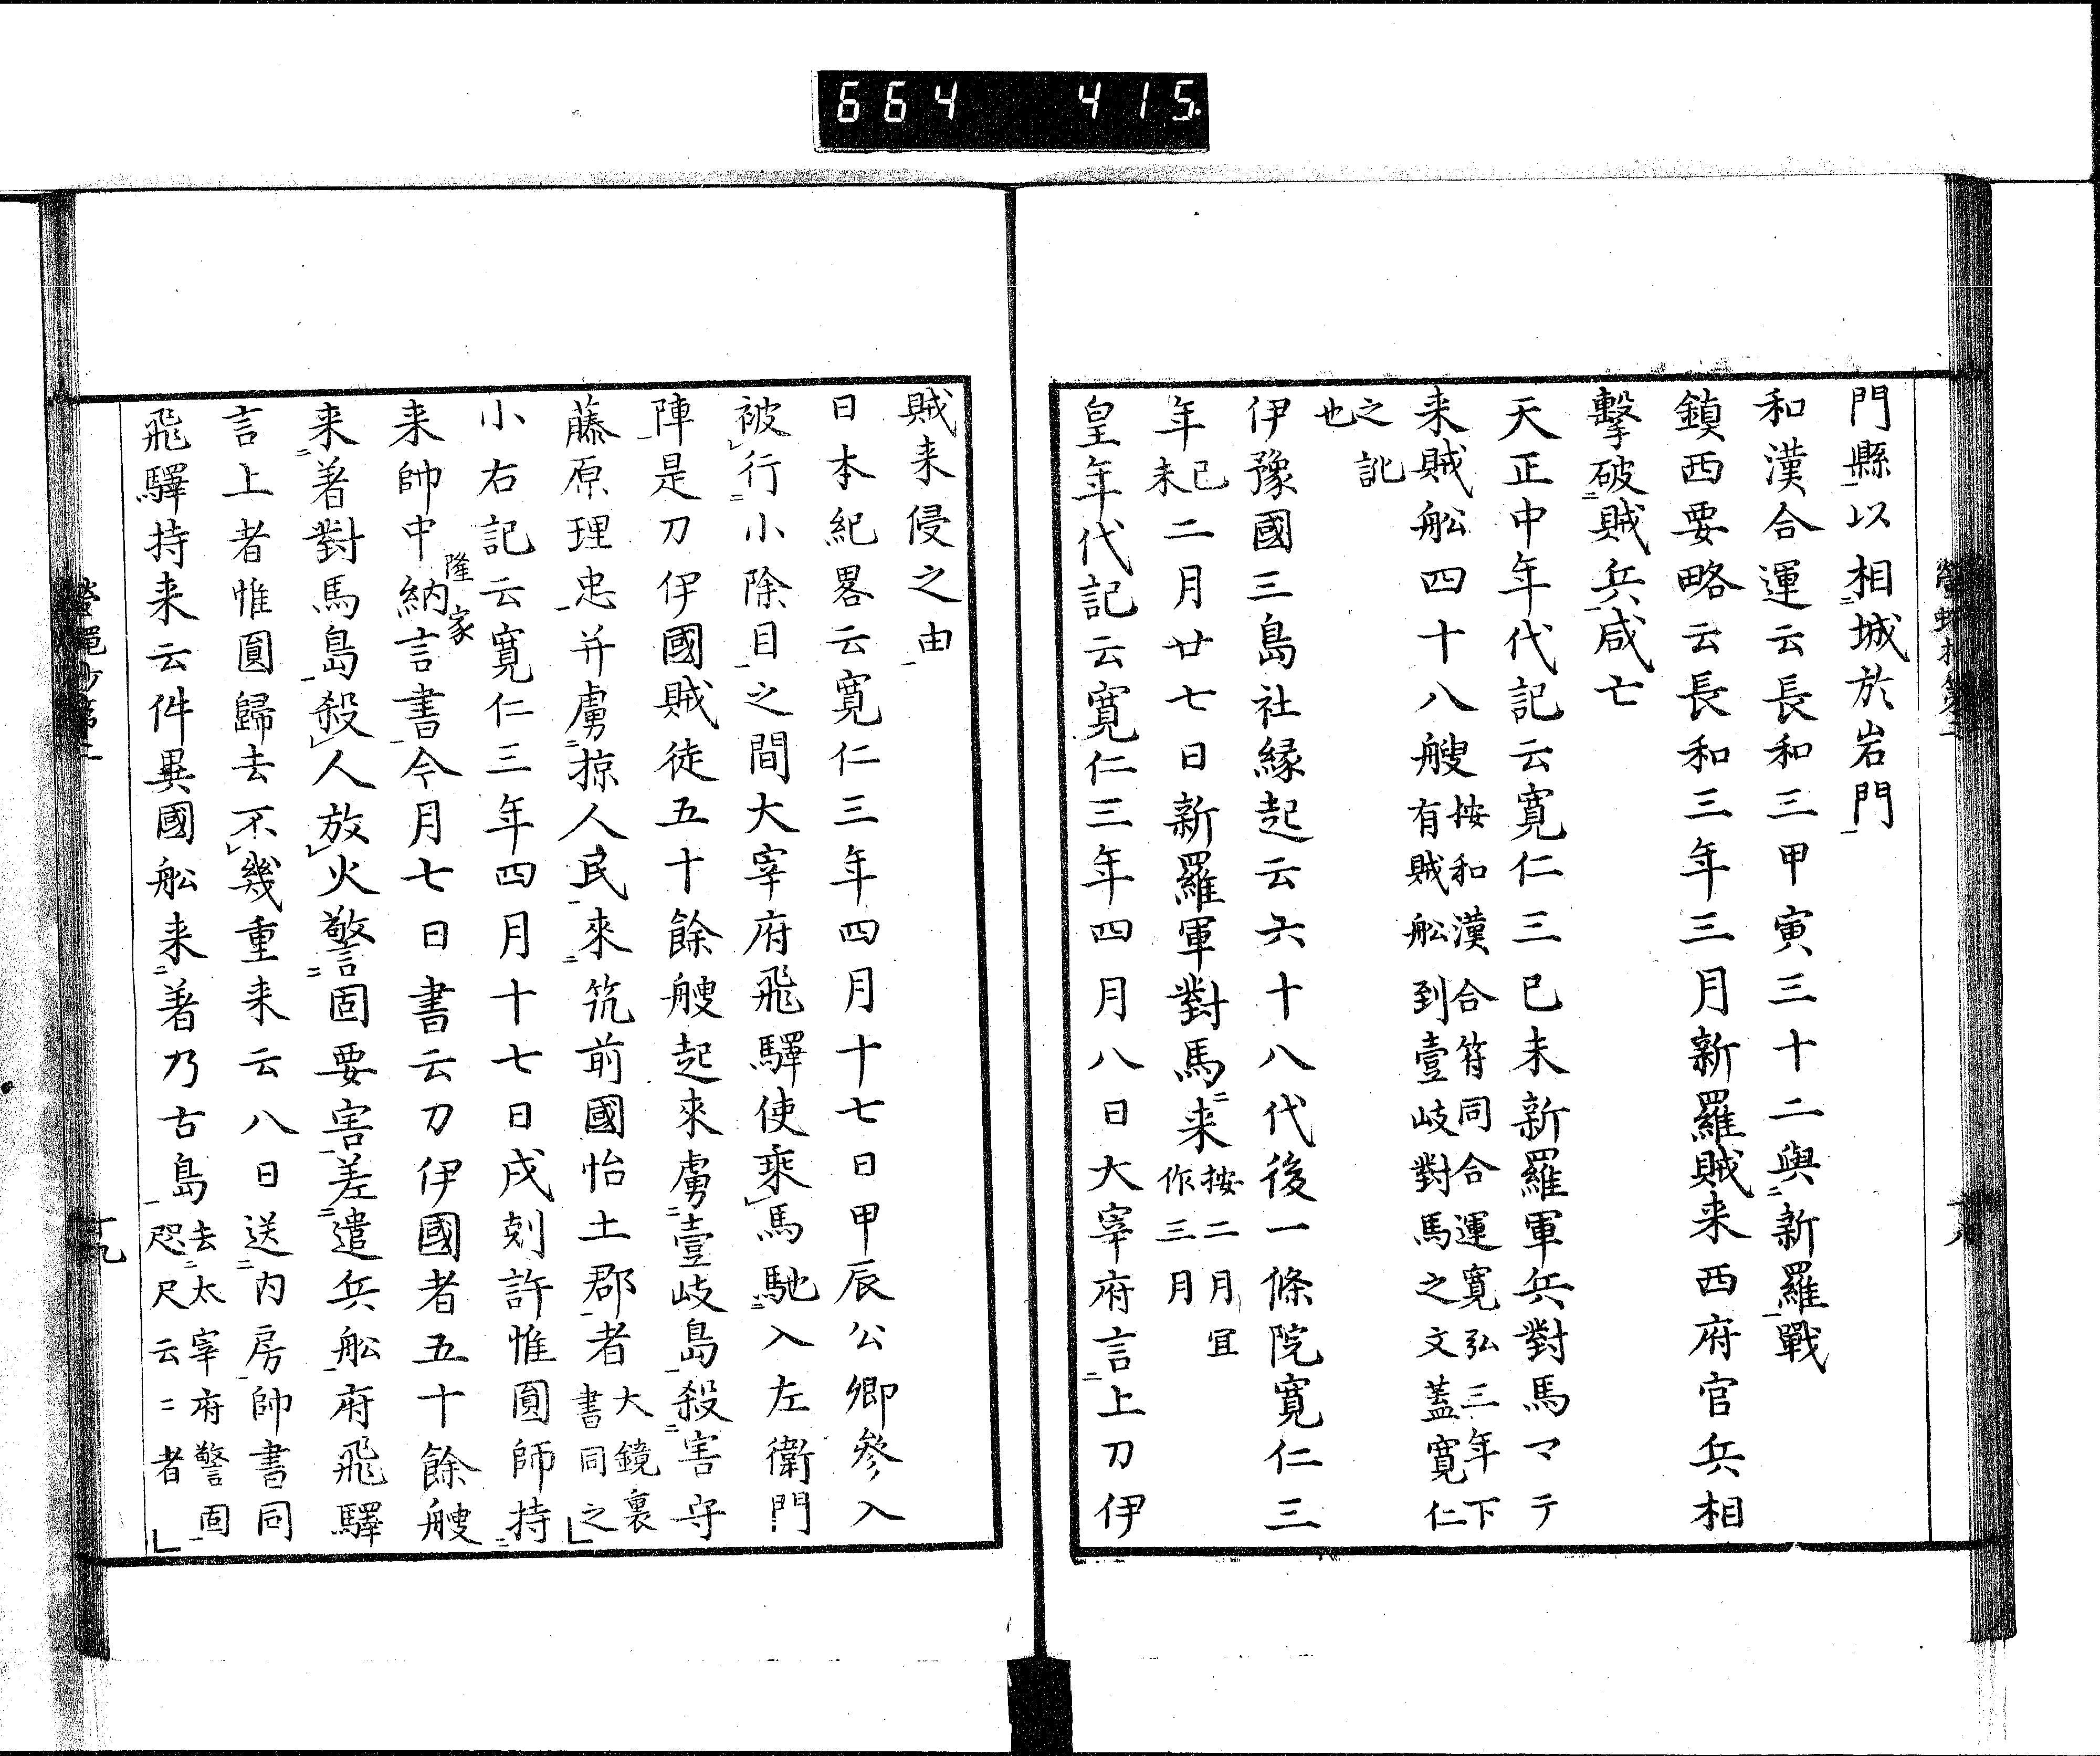 664 415
門縣以相城於岩門
和漢合運云長和三甲寅三十二與新羅戰
鎮西要略云長和三年三月新羅賊来西府官兵相
擊破賊兵咸亡
天正中年代記云寛仁三己未新羅軍兵對馬マテ
来賊舩四十八艘按和漢合符同合運寛弘三年下
有賊舩到壹岐對馬之文蓋寛仁
之訛
也
伊豫國三島社縁起云六十八代後一條院寛仁三
年己未二月廿七日新羅軍對馬来按二月冝
作三月
皇年代記云寛仁三年四月八日大宰府言上刀伊
賊来侵之由
日本紀畧云寛仁三年四月十七日甲辰公卿參入
被行小除目之間大宰府飛驛使乘馬馳入左衛門
陣是刀伊國賊徒五十餘艘起來虜壹岐島殺害守
藤原理忠并虜掠人民來筑前國怡土郡者大鏡裏
書同之
小右記云寛仁三年四月十七日戌剋許惟圓師持
来帥中納言隆家書今月七日書云刀伊國者五十餘艘
来著對馬島殺人放火警固要害差遣兵舩府飛驛
言上者惟圓歸去不幾重来云八日送内房帥書同
飛驛持来云件異國舩来著乃古島去太宰府警固
咫尺云〻者
螢蠅抄第二
十九